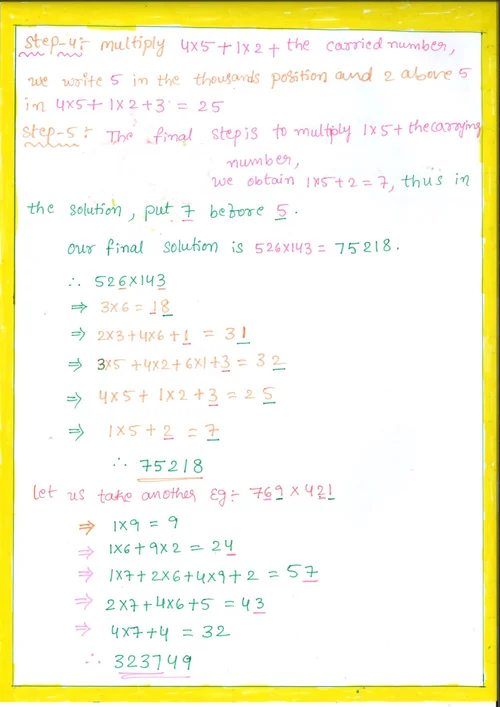 Step-4:- multiply 4x5+1x2+ the carried number,
we write 5 in the thousands position and 2 above 5
in 4x5+1x2+3 = 25
Step-5:- The final step is to multply 1x5+ the carrying
number,
we obtain 1x5+2=7, thus in
the solution, put 7 before 5.
our final solution is 526x143 = 75218.
∴ 526x143
⇒ 3x6=18
⇒ 2x3+4x6+1 = 31
⇒ 3x5+4x2+6x1+3 = 32
⇒ 4x5+1x2+3 = 25
⇒ 1x5+2 = 7
∴ 75218
Let us take another Eg:- 769 x 421
⇒ 1x9 = 9
⇒ 1x6+9x2 = 24
⇒ 1x7+2x6+4x9+2 = 57
⇒ 2x7+4x6+5 = 43
⇒ 4x7+4 = 32
∴ 323749